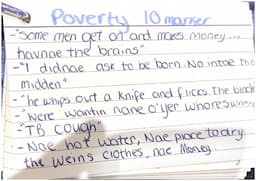 Poverty 10 marker
-"Some men get on and makes money...
havnae the brains"
-"I didnae ask to be born. No intae the
midden"
-"he whips out a knife and flicks the blade
-"We're wantin nane o'yer whores
-"TB cough"
- Nae hot water, Nae place to dry
the weins clothes, nae money.